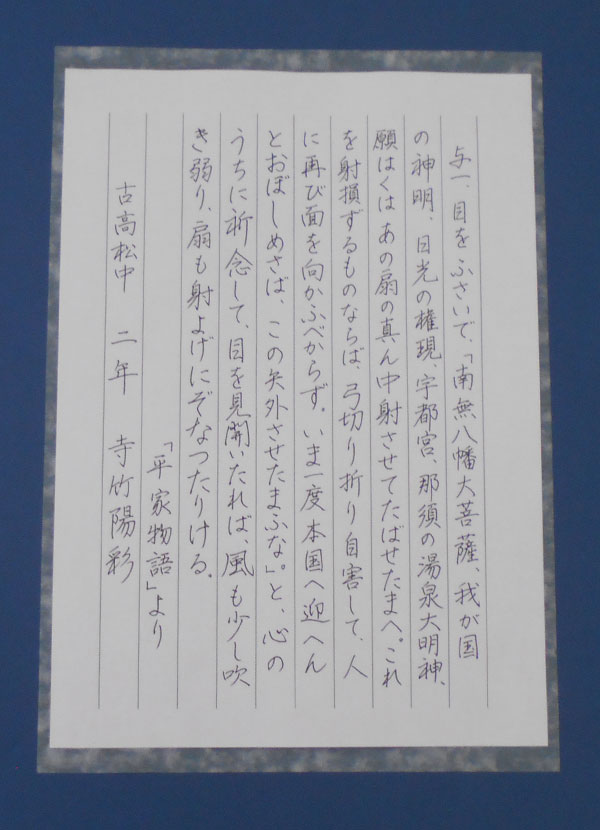 与一、目をふさいで、「南無八幡大菩薩、我が国
の神明、日光の権現、宇都宮、那須の湯泉大明神、
願はくはあの扇の真ん中射させてたばせたまへ。これ
を射損ずるものならば、弓切り折り自害して、人
に再び面を向かふべからず。いま一度本国へ迎へん
とおぼしめさば、この矢外させたまふな。」と、心の
うちに祈念して、目を見開いたれば、風も少し吹
き弱り、扇も射よげにぞなつたりける。
「平家物語」より
古高松中 二年 寺竹陽彩